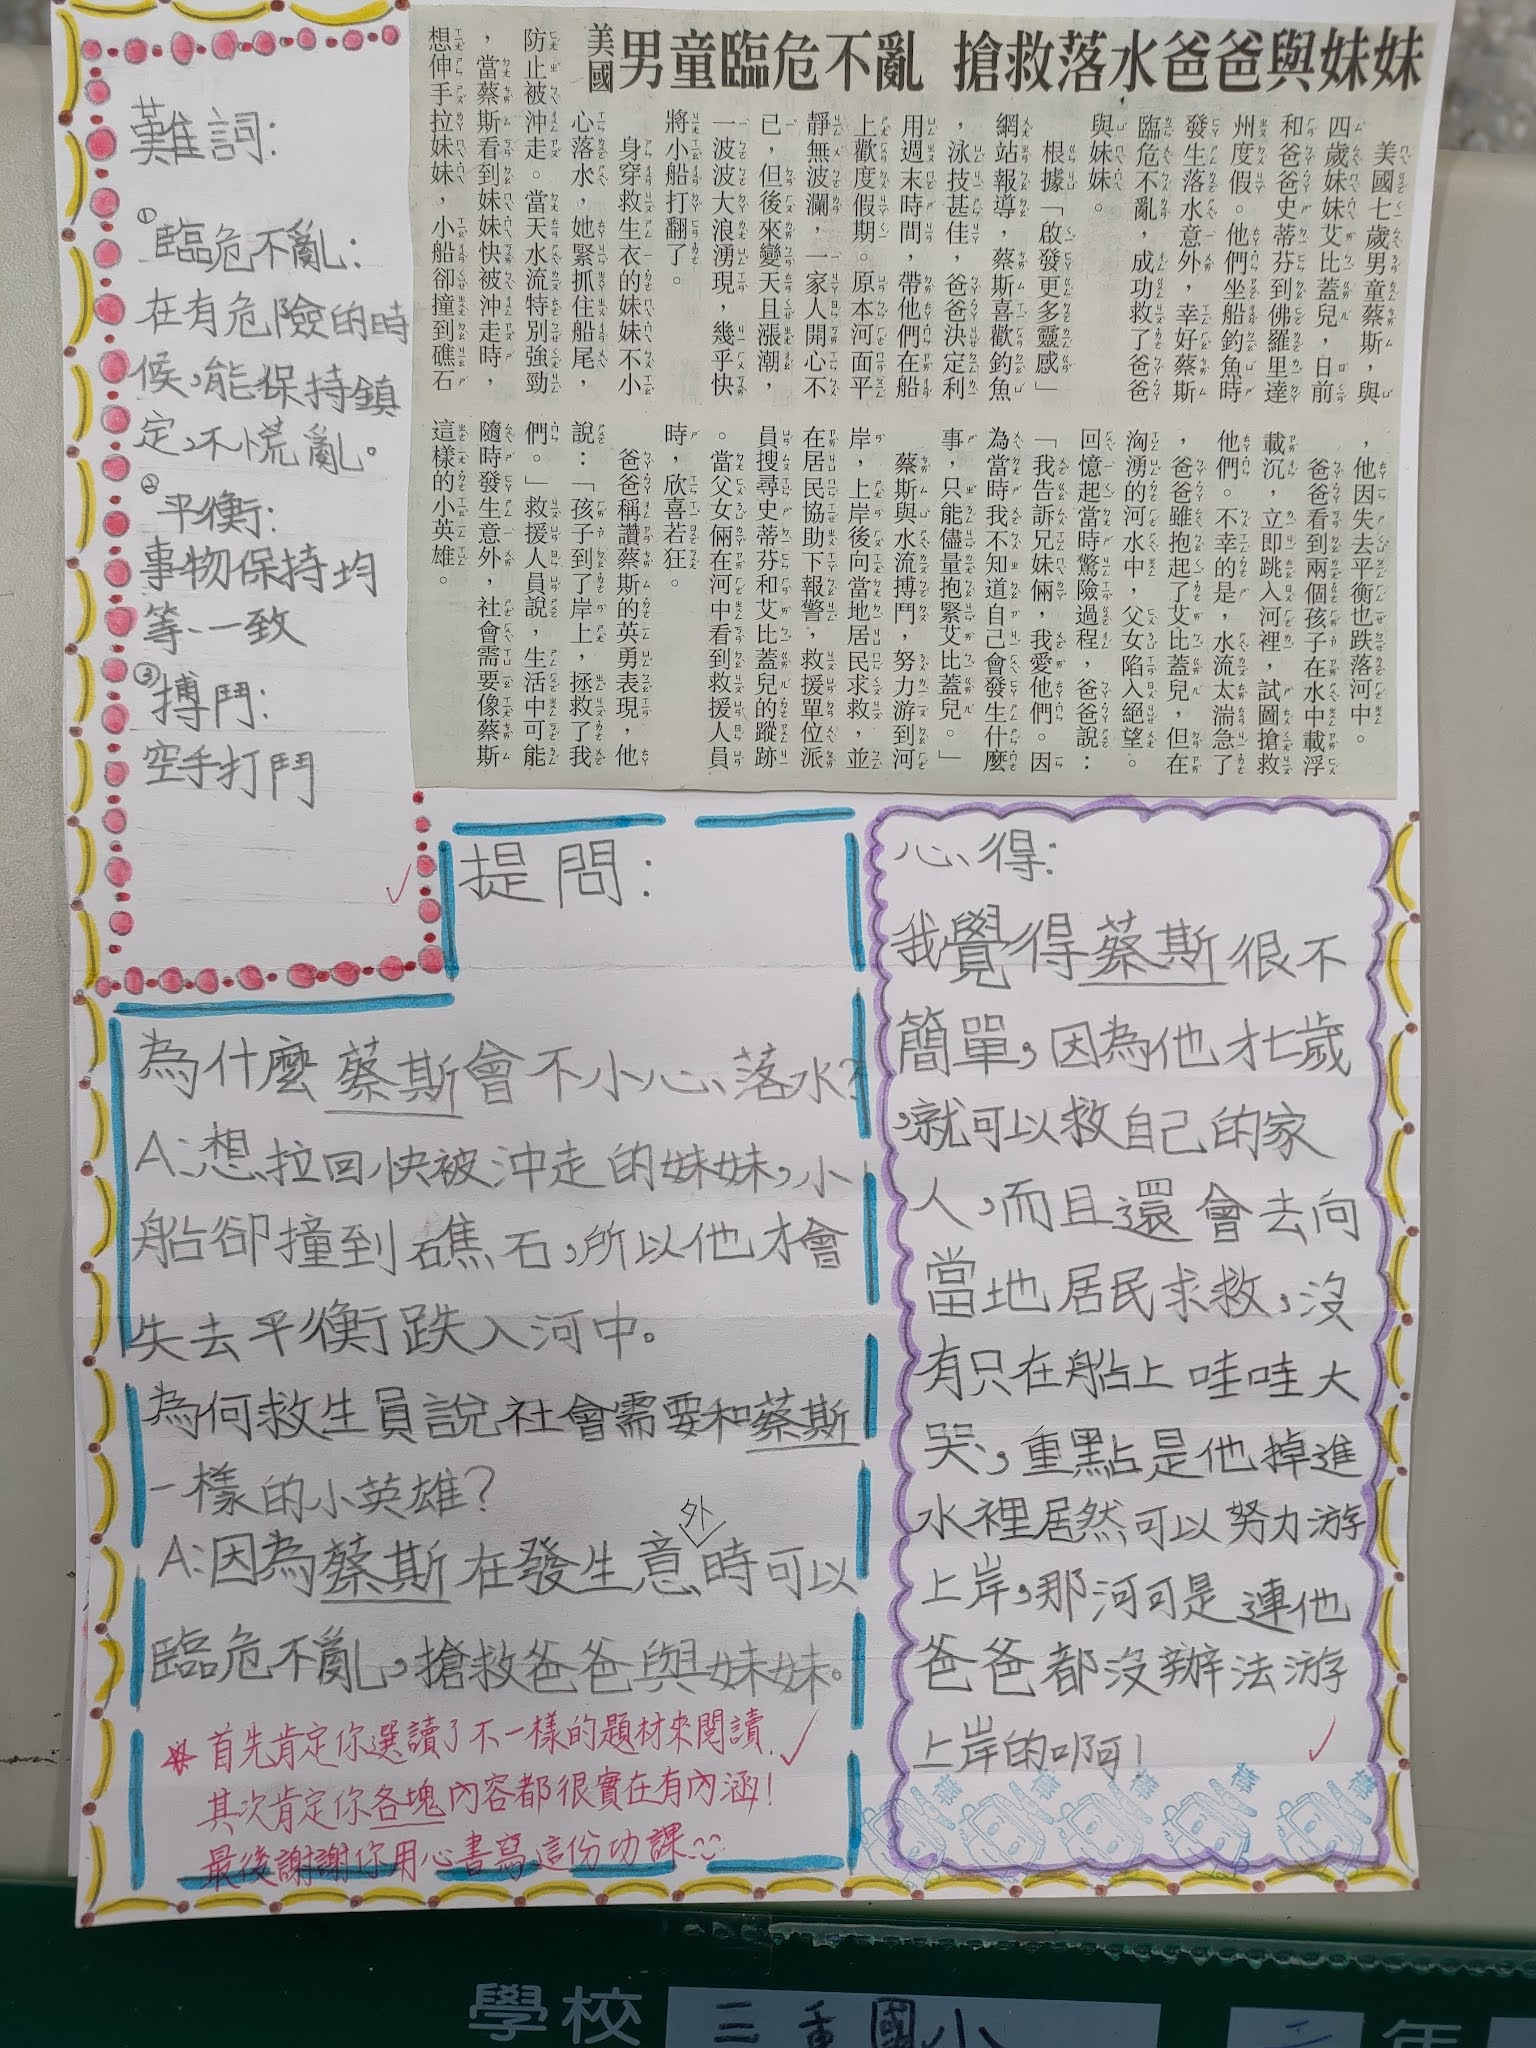 美國男童臨危不亂 搶救落水爸爸與妹妹
美國七歲男童蔡斯，與
四歲妹妹艾比蓋兒，日前
和爸爸史蒂芬到佛羅里達
州度假。他們坐船釣魚時
發生落水意外，幸好蔡斯
臨危不亂，成功救了爸爸
與妹妹。
根據「啟發更多靈感」
網站報導，蔡斯喜歡釣魚
，泳技甚佳，爸爸決定利
用週末時間，帶他們在船
上歡度假期。原本河面平
靜無波瀾，一家人開心不
已，但後來變天且漲潮，
一波波大浪湧現，幾乎快
將小船打翻了。
身穿救生衣的妹妹不小
心落水，她緊抓住船尾，
防止被沖走。當天水流特別強勁
，當蔡斯看到妹妹快被沖走時，
想伸手拉妹妹，小船卻撞到礁石
，他因失去平衡也跌落河中。
爸爸看到兩個孩子在水中載浮
載沉，立即跳入河裡，試圖搶救
他們。不幸的是，水流太湍急了
，爸爸雖抱起了艾比蓋兒，但在
洶湧的河水中，父女陷入絕望。
回憶起當時驚險過程，爸爸說：
「我告訴兄妹倆，我愛他們。因
為當時我不知道自己會發生什麼
事，只能儘量抱緊艾比蓋兒。」
蔡斯與水流搏鬥，努力游到河
岸，上岸後向當地居民求救，並
在居民協助下報警，救援單位派
員搜尋史蒂芬和艾比蓋兒的蹤跡
。當父女倆在河中看到救援人員
時，欣喜若狂。
爸爸稱讚蔡斯的英勇表現，他
說：「孩子到了岸上，拯救了我
們。」救援人員說，生活中可能
隨時發生意外，社會需要像蔡斯
這樣的小英雄。
難詞:
①臨危不亂:
在有危險的時
候,能保持鎮
定,不慌亂。
②平衡:
事物保持均
等、一致
③搏鬥:
空手打鬥
提問:
為什麼蔡斯會不小心落水?
A:想拉回快被沖走的妹妹,小
船卻撞到礁石,所以他才會
失去平衡跌入河中。
為何救生員說社會需要和蔡斯
一樣的小英雄?
A:因為蔡斯在發生意外時可以
臨危不亂,搶救爸爸與妹妹。
首先肯定你選讀了不一樣的題材來閱讀,
其次肯定你各塊內容都很實在有內涵!
最後謝謝你用心書寫這份功課
心得:
我覺得蔡斯很不
簡單,因為他才七歲
,就可以救自己的家
人,而且還會去向
當地居民求救,沒
有只在船上哇哇大
哭,重點是他掉進
水裡居然可以努力游
上岸,那河可是連他
爸爸都沒辦法游
上岸的啊!
棒 棒 棒 棒 棒
學校 三重國小 二年